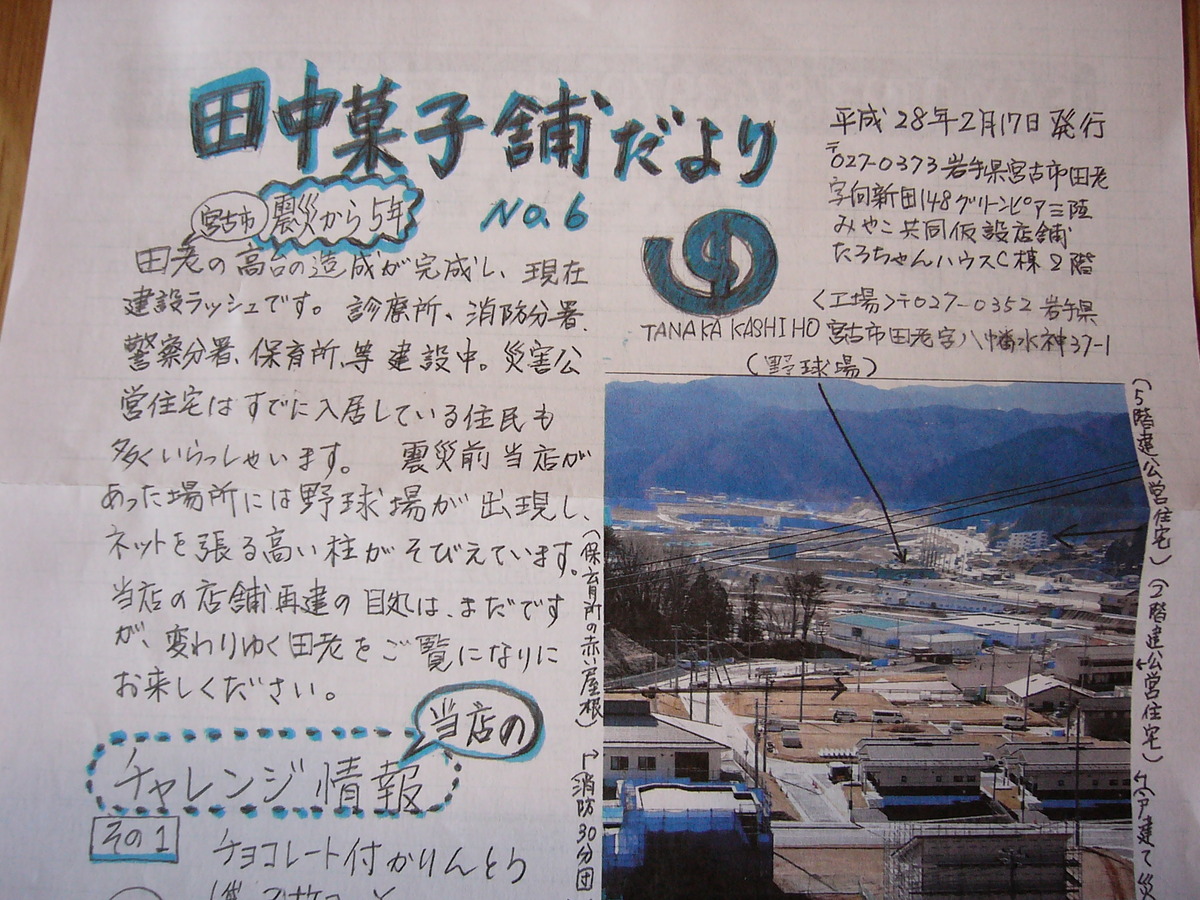 田中菓子舗だより
No.6
平成28年2月17日発行
〒027-0373 岩手県宮古市田老
字向新田148グリーンピア三陸
みやこ共同仮設店舗
たろちゃんハウスC棟2階
〈工場〉〒027-0352 岩手県
宮古市田老字八幡水神37-1
TANAKA KASHIHO
宮古市
震災から5年
田老の高台の造成が完成し、現在
建設ラッシュです。診療所、消防分署、
警察分署、保育所、等建設中。災害公
営住宅はすでに入居している住民も
多くいらっしゃいます。 震災前当店が
あった場所には野球場が出現し、
ネットを張る高い柱がそびえています。
当店の店舗再建の目処は、まだです
が、変わりゆく田老をご覧になりに
お来しください。
(野球場)
(5階建公営住宅)
(2階建公営住宅)
(保育所の赤い屋根)
消防30分団
戸建て災
当店の
チャレンジ情報
その1
チョコレート付かりんとう